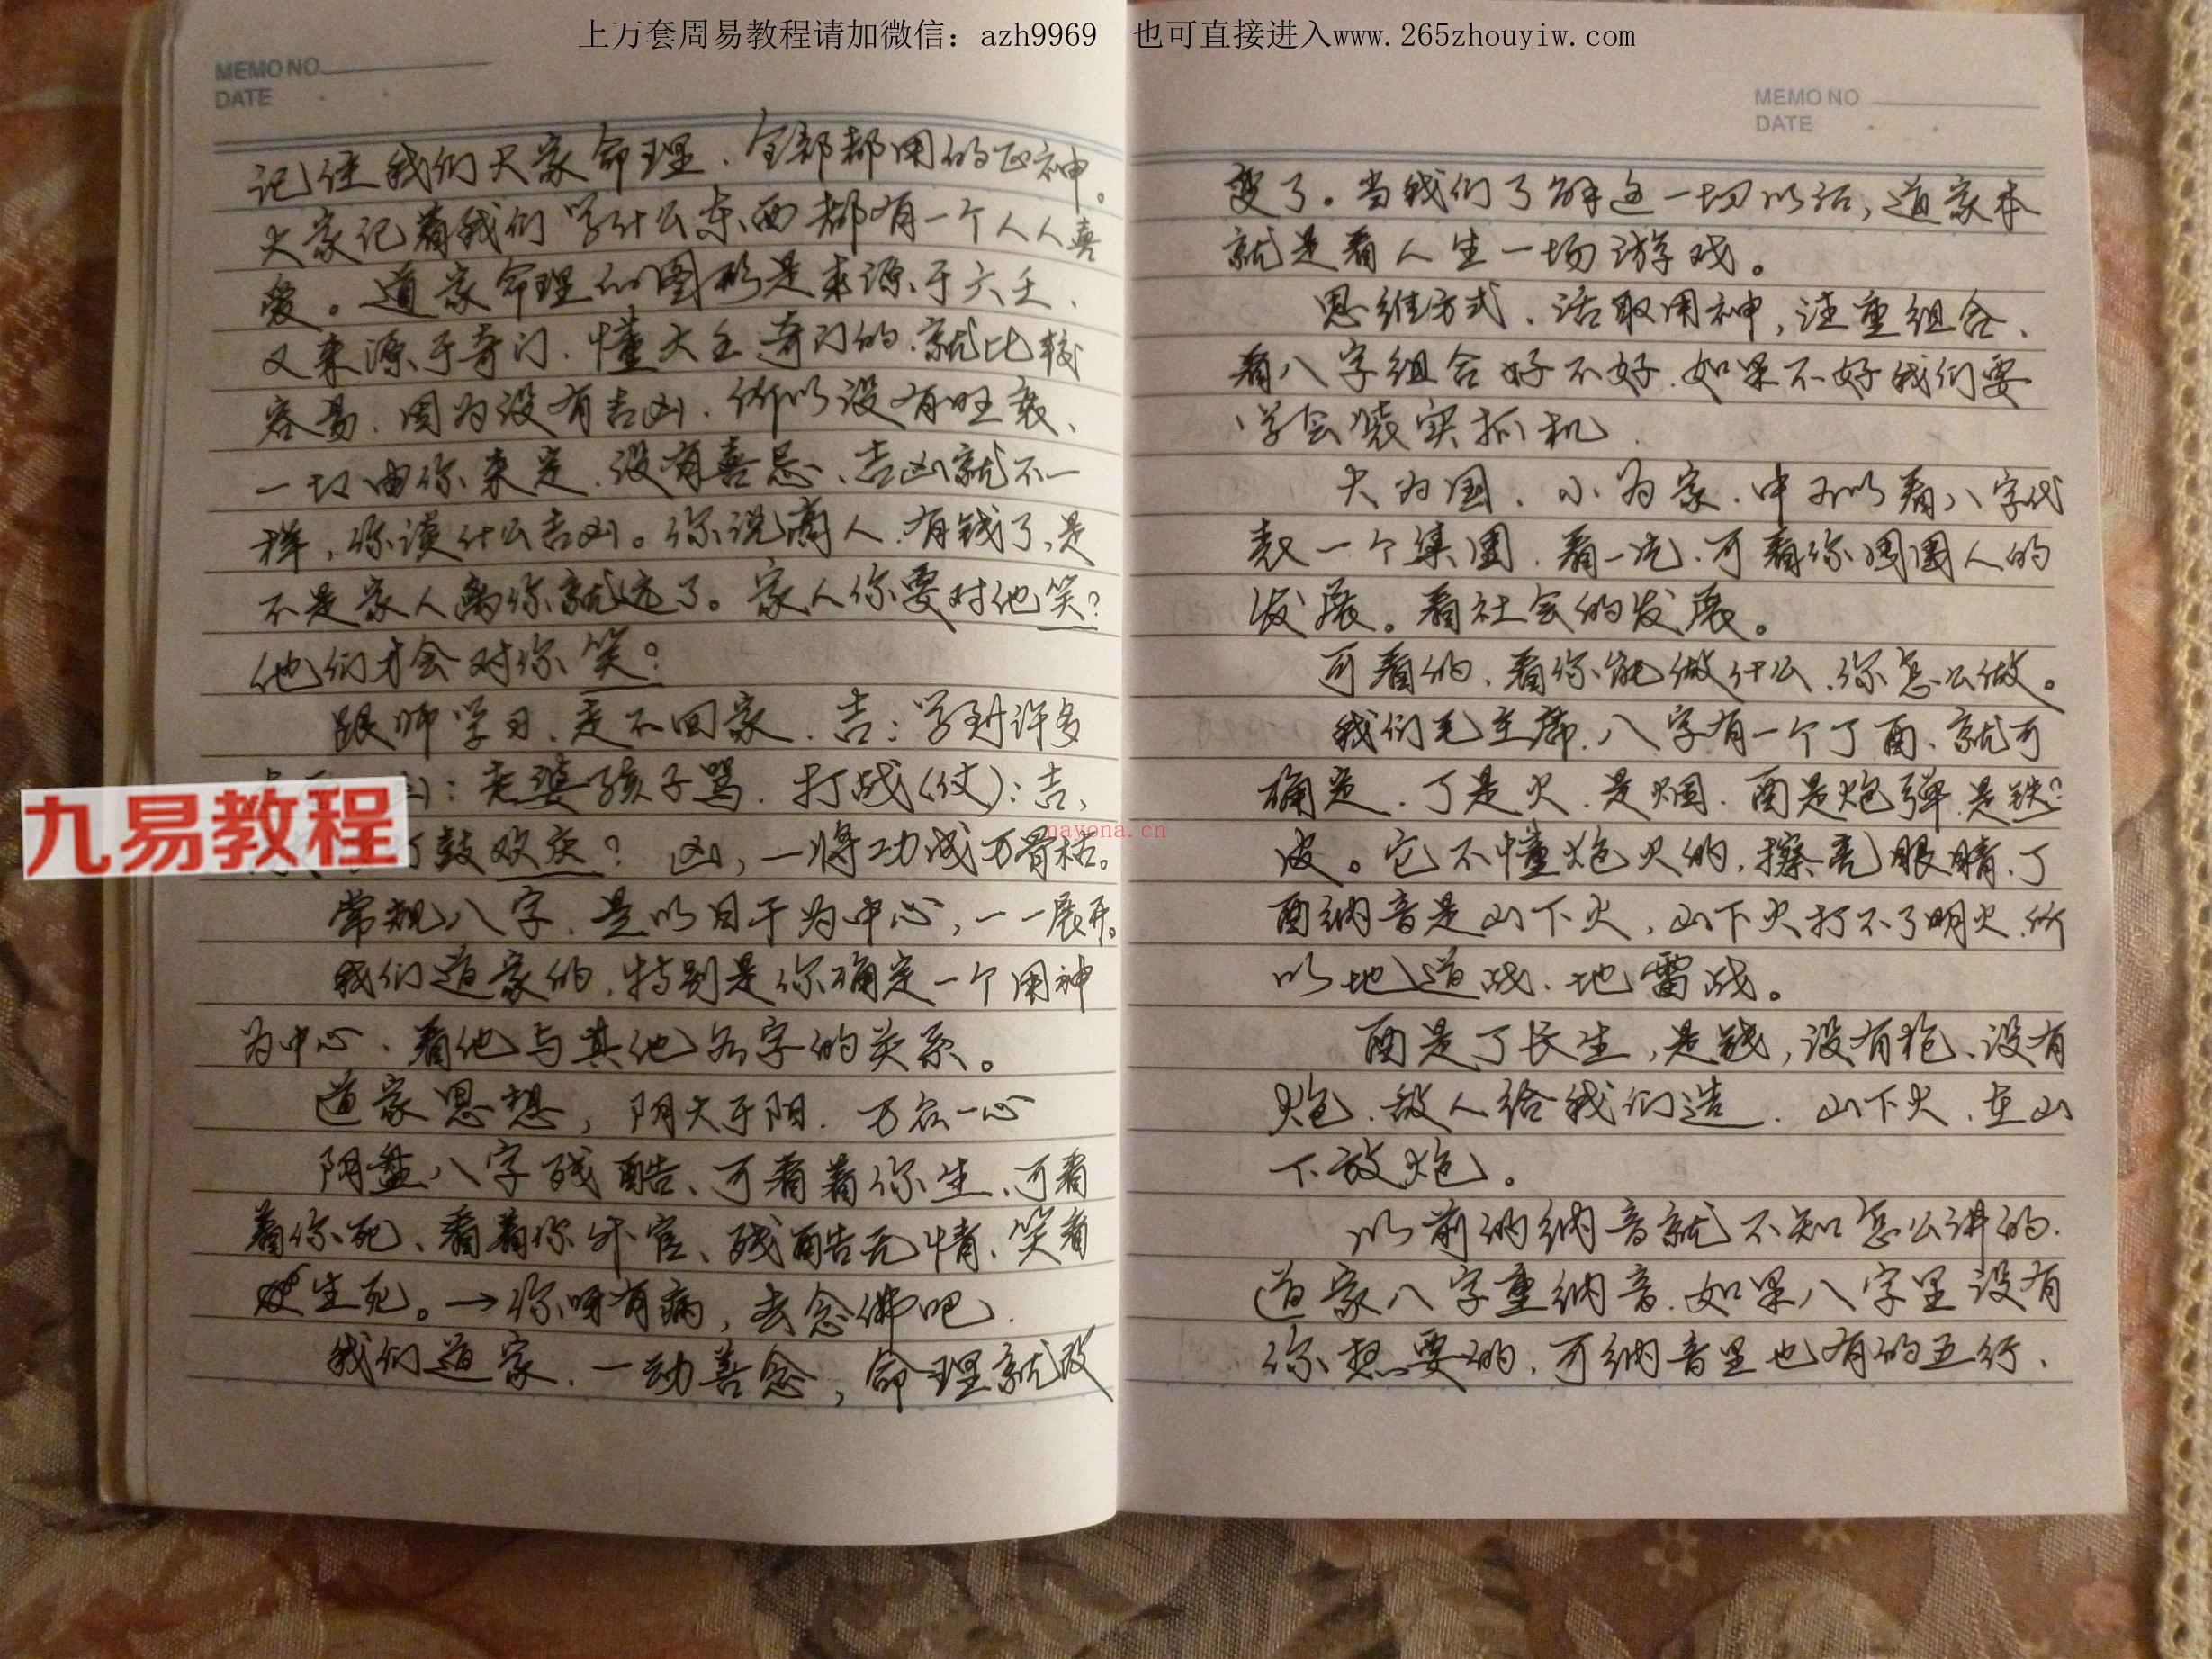 上万套周易教程请加微信：azh9969　也可直接进入www.265zhouyiw.com
MEMO NO
DATE
记住我们大家命理、全部都用的正神。
大家记着我们学什么东西都有一个人人喜
爱。道家命理的图形是来源于六壬、
又来源于奇门、懂大壬奇门的、就比较
容易、因为没有吉凶、所以没有旺衰、
一切由你来定、没有喜忌、吉凶就不一
样，你谈什么吉凶。你说商人、有钱了、是
不是家人离你就远了。家人你要对他笑？
他们才会对你笑？
跟师学习、走不回家、吉：学到许多
：老婆孩子骂、打战(仗)：吉、
鼓欢庆？凶，一将功成万骨枯。
九易教程
nayona.cn
常规八字、是以日干为中心，一一展开。
我们道家的、特别是你确定一个用神
为中心、看他与其他名字的关系。
道家思想，阴大于阳、万众一心
阴盘八字残酷、可看着你生、可看
着你死、看着你升官、残酷无情、笑看
生死。→你呀有病，去念佛吧、
我们道家、一动善念，命理就改
MEMO NO
DATE
变了。当我们了解这一切以后，道家本
就是看人生一场游戏。
思维方式、活取用神，注重组合、
看八字组合好不好、如果不好我们要
学会装实抓机、
大为国、小为家、中可以看八字代
表一个集团、看一元、可看你周围人的
发展。看社会的发展。
可看的、看你能做什么、你怎么做。
我们毛主席、八字有一个丁酉、就可
确定、丁是火、是烟、酉是炮弹、是铁？
皮。它不懂炮火的，擦亮眼睛、丁
酉纳音是山下火，山下火打不了明火、所
以地道战、地雷战。
酉是丁长生，是钱，没有枪、没有
炮、敌人给我们造、山下火、在山
下放炮。
以前的纳音就不知怎么讲的、
道家八字重纳音、如果八字里没有
你想要的、可纳音里也有的五行、